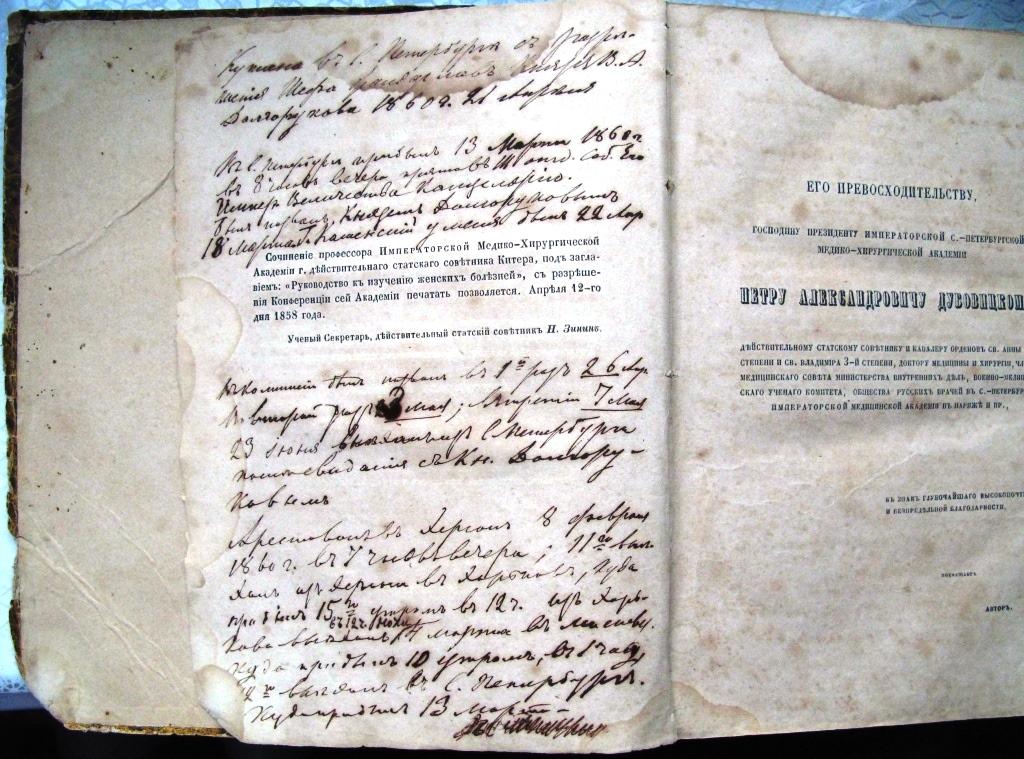 Куплена въ С. Петербургѣ съ разрѣ-
шенія Шефа Князя В. А.
Долгорукова 1860 г. 21 Апрѣля
Въ С. Петербургъ прибылъ 13 Марта 1860 г.
въ 8 часовъ вечера, прямо въ III отд. Соб. Его
Импер. Величества Канцелярію.
былъ Княземъ Долгоруковымъ
18 Марта. у меня былъ 22 Мар
Сочиненіе профессора Императорской Медико-Хирургической
Академіи г. дѣйствительнаго статскаго совѣтника Китера, подъ загла-
віемъ: «Руководство къ изученію женскихъ болѣзней», съ разрѣше-
нія Конференціи сей Академіи печатать позволяется. Апрѣля 12-го
дня 1858 года.
Ученый Секретарь, дѣйствительный статскій совѣтникъ Н. Зининъ.
Въ коммисіи былъ въ 1й разъ 26 Мар
Во второй разъ 3 мая; въ третій 7 Мая
23 Іюня изъ С. Петербурга
послѣ свиданія съ Кн. Долгору-
ковымъ
Арестованъ въ Херсонѣ 8 февраля
1860 г. въ 7 часовъ вечера; 11го выѣ-
халъ изъ Херсона въ Харьковъ, куда
прибылъ 15го въ 12 ч. изъ Харь-
въ 12 ч. ночи
кова выѣхалъ марта въ Москву,
куда прибылъ 10 утромъ, въ 1 часу
12го выѣхалъ въ С. Петербургъ.
Куда прибылъ 13 Марта
ЕГО ПРЕВОСХОДИТЕЛЬСТВУ,
ГОСПОДИНУ ПРЕЗИДЕНТУ ИМПЕРАТОРСКОЙ С.-ПЕТЕРБУРГСКОЙ
МЕДИКО-ХИРУРГИЧЕСКОЙ АКАДЕМІИ
ПЕТРУ АЛЕКСАНДРОВИЧУ ДУБОВИЦКОМ
ДѢЙСТВИТЕЛЬНОМУ СТАТСКОМУ СОВѢТНИКУ И КАВАЛЕРУ ОРДЕНОВЪ СВ. АННЫ
СТЕПЕНИ И СВ. ВЛАДИМІРА 3-Й СТЕПЕНИ, ДОКТОРУ МЕДИЦИНЫ И ХИРУРГІИ, ЧЛ
МЕДИЦИНСКАГО СОВѢТА МИНИСТЕРСТВА ВНУТРЕННИХЪ ДѢЛЪ, ВОЕННО-МЕДИЦ
СКАГО УЧЕНАГО КОМИТЕТА, ОБЩЕСТВА РУССКИХЪ ВРАЧЕЙ ВЪ С.-ПЕТЕРБУР
ИМПЕРАТОРСКОЙ МЕДИЦИНСКОЙ АКАДЕМІИ ВЪ ПАРИЖѢ И ПР.,
ВЪ ЗНАКЪ ГЛУБОЧАЙШАГО ВЫСОКОПОЧТ
И БЕЗПРЕДѢЛЬНОЙ БЛАГОДАРНОСТИ,
ПОСВЯЩАЕТЪ
АВТОРЪ.